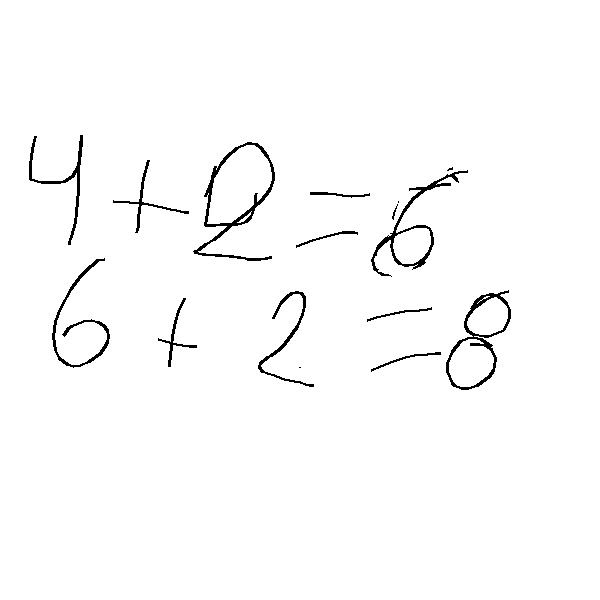 4+2=6
6+2=8